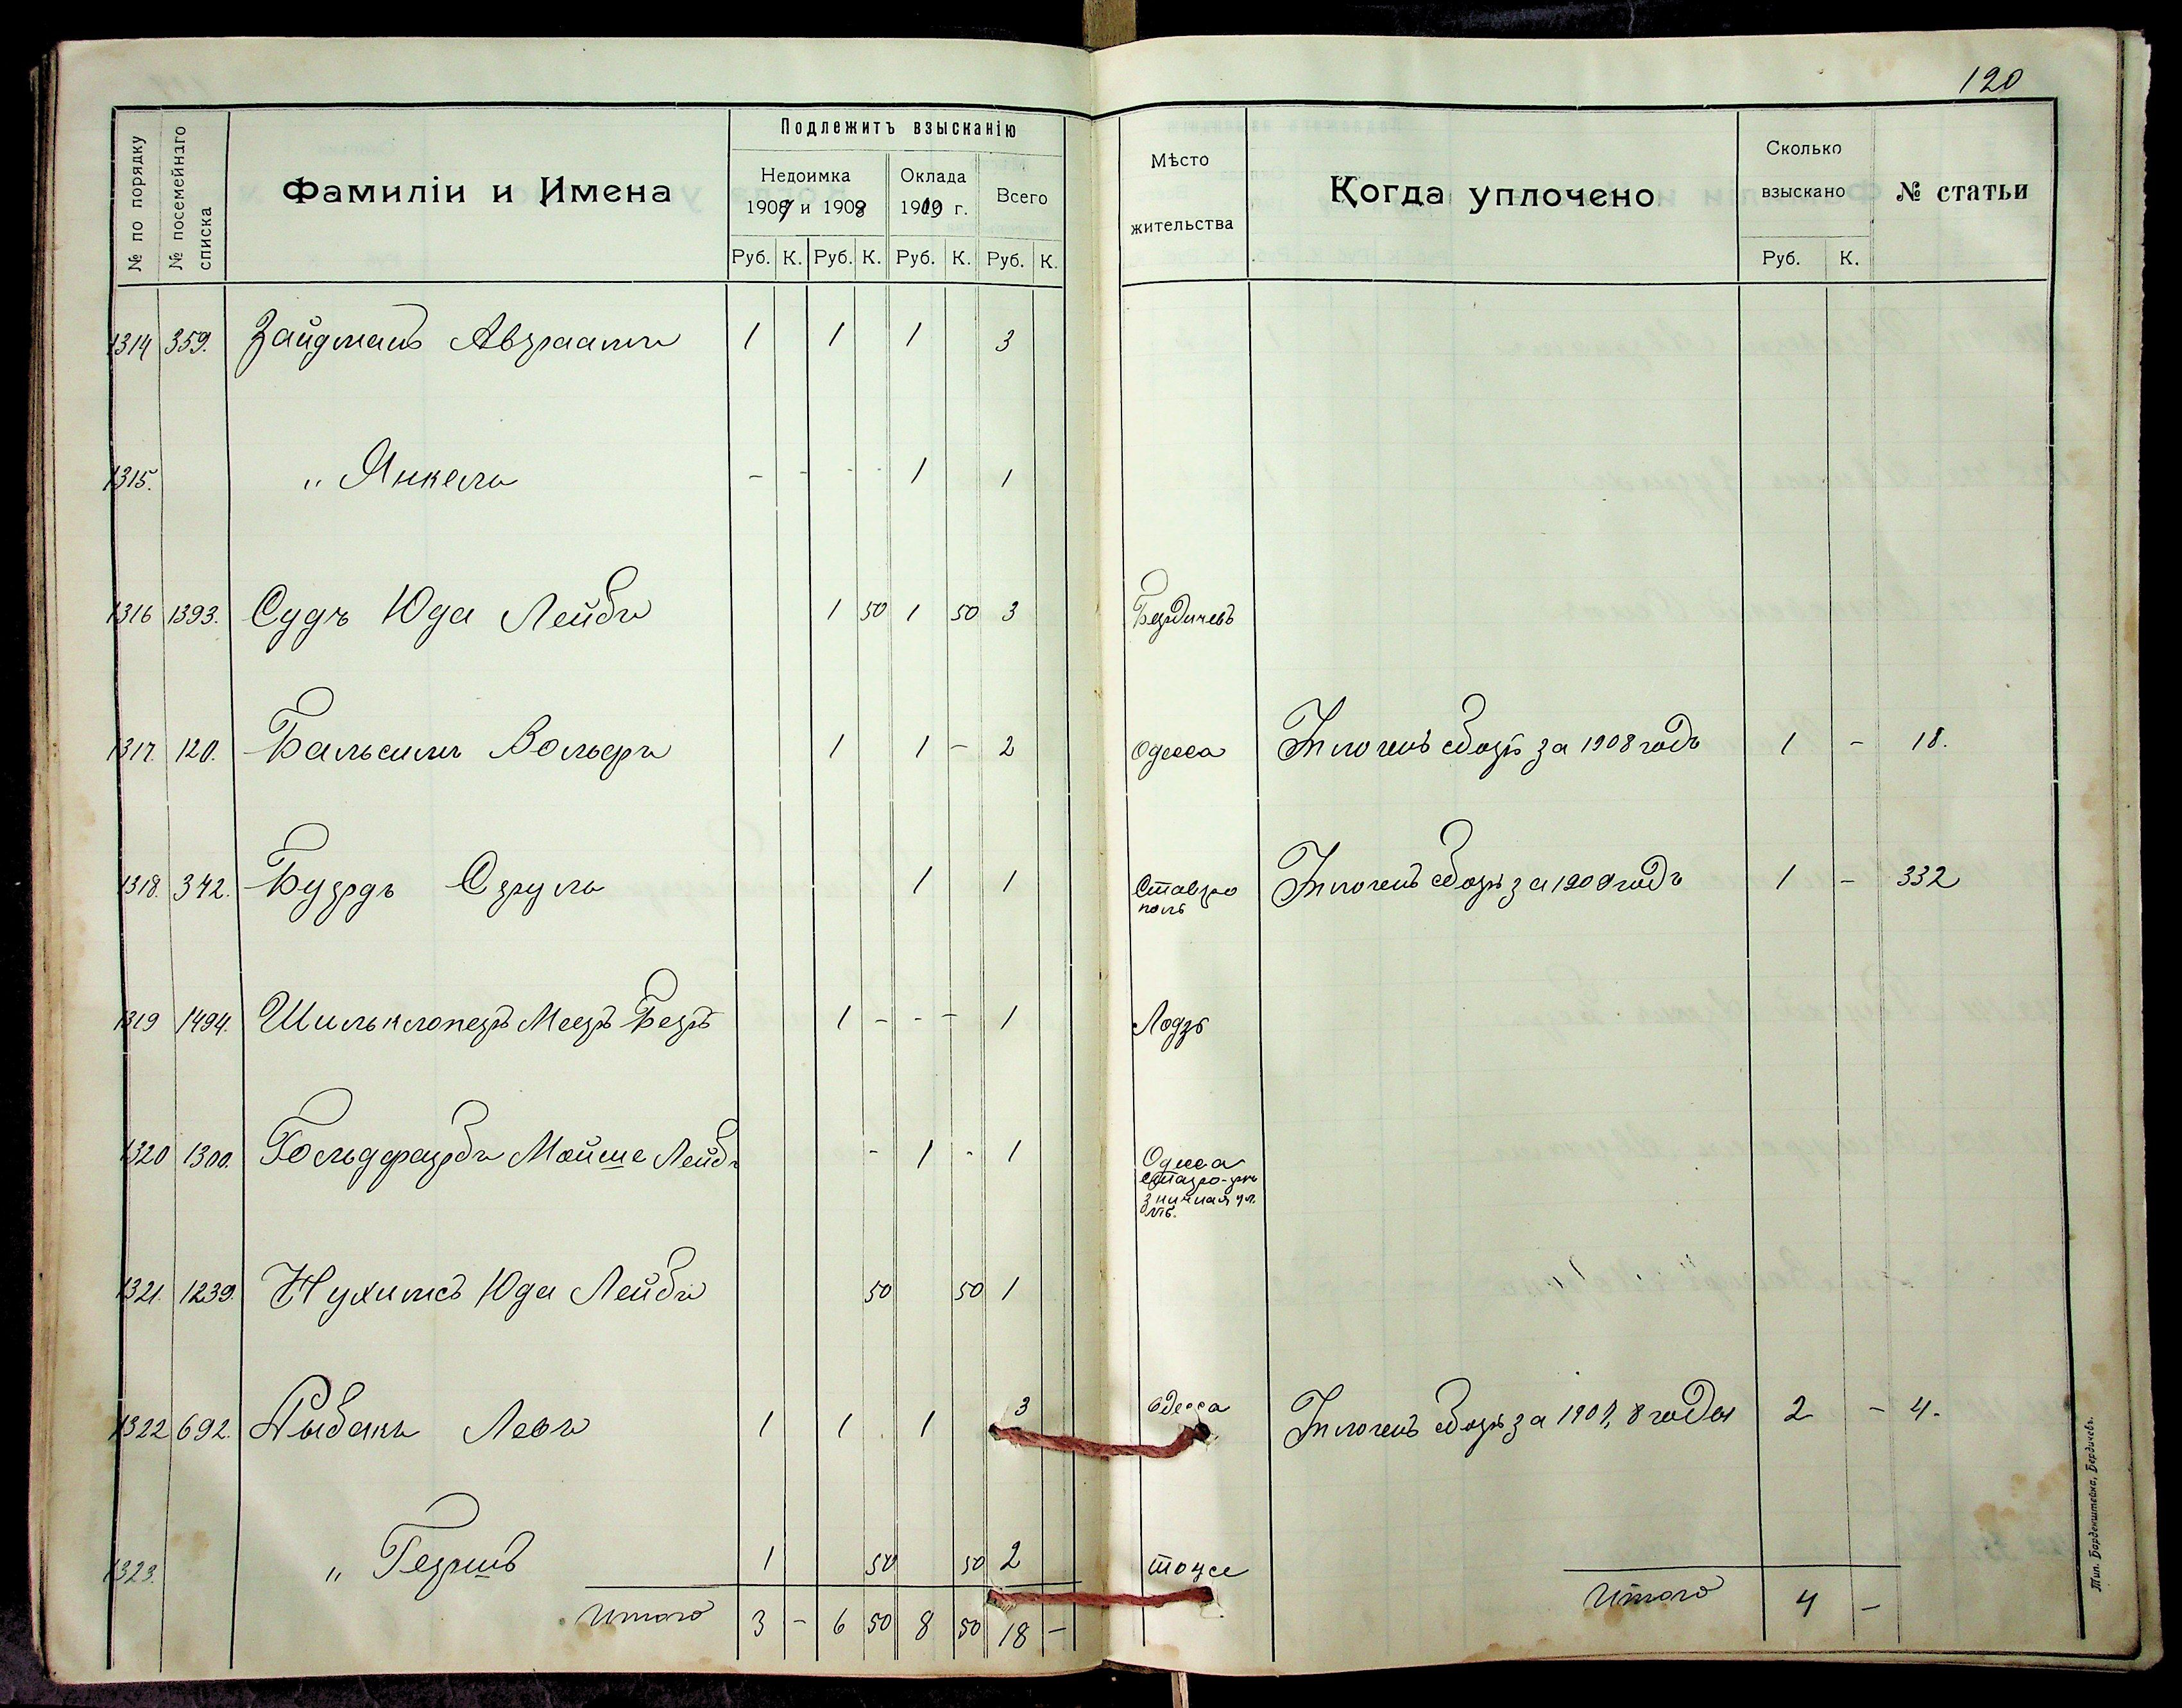 120
№ по порядку
№ посемейнаго списка
Фамиліи и Имена
Подлежитъ взысканію
Недоимка
1907 и 1908
Оклада
1909 г.
Всего
Руб. К. Руб. К. Руб. К. Руб. К.
Мѣсто
жительства
Когда уплочено
Сколько
взыскано
Руб. К.
№ статьи
1314 359. Зайдманъ Авраамъ 1 1 1 3
1315. „ Янкель - - - - 1 1
1316 1393. Судъ Юда Лейбъ 1 50 1 50 3 Бердичевъ
1317. 120. Бальсимъ Вольфъ 1 1 - 2 Одесса Уплоченъ сборъ за 1908 годъ 1 - 18.
1318. 342. Бурдъ Сруль 1 1 Ставро
поль Уплоченъ сборъ за 1909 годъ 1 - 332
1319 1494. Шильклоперъ Мееръ Беръ 1 - - - 1 Лодзь
1320 1300. Гольдфарбъ Мойше Лейбъ - 1 - 1 Одесса
1321. 1239. Нухимсъ Юда Лейбъ 50 50 1
1322 692. Рыбакъ Левъ 1 1 1 3 Одесса Уплоченъ сборъ за 1907, 8 годы 2 - 4.
1323. „ Гершъ 1 50 50 2 тоже
Итого 3 - 6 50 8 50 18 -
Итого 4 -
Тип. Барденштейна, Бердичевъ.